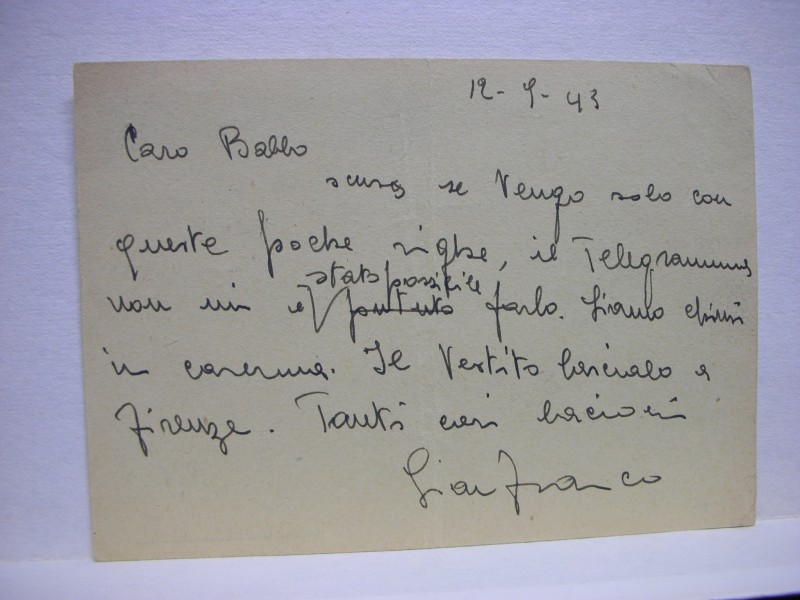 12-9-43
Caro Babbo
scusa se Vengo solo con
queste poche righe, il Telegramma
stato possibile
non mi è potuto farlo. Siamo chiusi
in caserma. Il Vestito lascialo a
Firenze. Tanti cari bacioni
Gianfranco